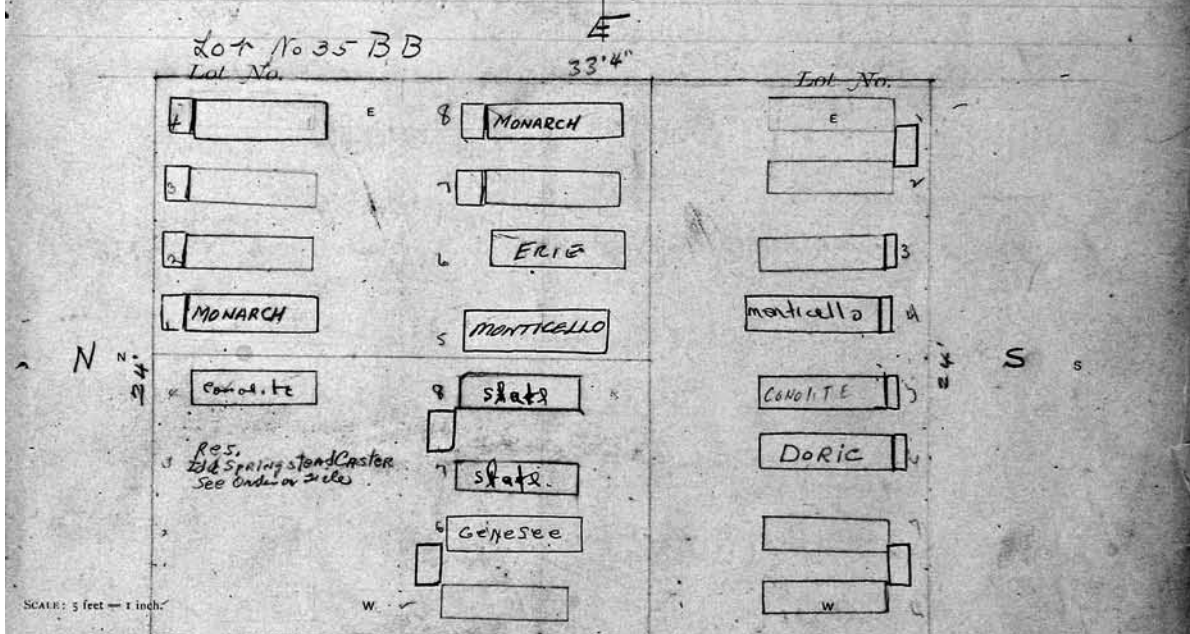 Lot No 35 B B
33'4"
Lot No.
Lot No.
4
E
8
MONARCH
E
1
3
7
2
2
6
ERIE
3
1
MONARCH
5
MONTICELLO
monticello
4
N
N
24'
24'
S
S
Conolite
8
State
CONOLITE
5
3
Res.
Springstead Caster
See Order on File
7
State.
DORIC
6
6
GENESEE
7
SCALE: 5 feet = 1 inch.
W
W